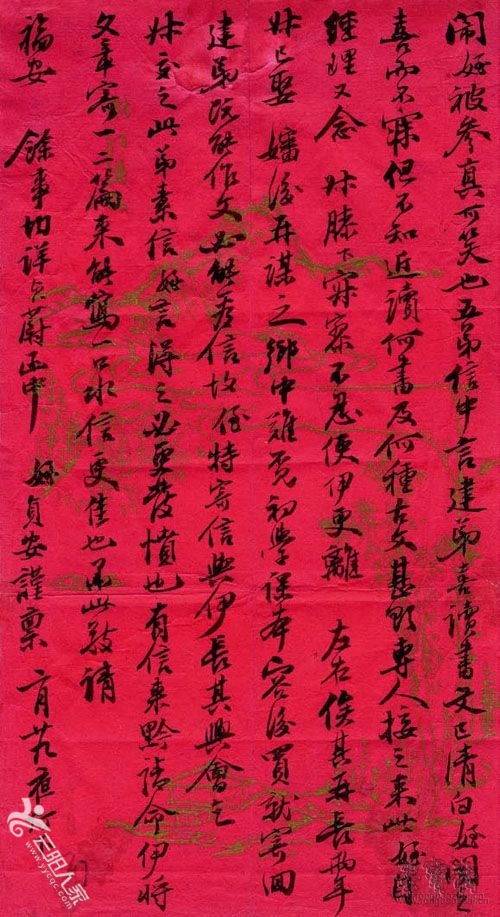 闹姪被参真可笑也五弟信中言建弟喜讀書文已清白姪闻之
喜而不寐但不知近讀何書及何種古文甚盼專人接之来此姪
經理又念 叔膝下寂寥不忍使伊更離 左右俟其再長兩年
叔已娶 嬸後再謀之鄉中難覓初學課本容後買就寄回
建弟既能作文必能看信故侄特寄信與伊長其興會乞
叔交之此弟素信姪言得之必更發憤也有信来黔請命伊將
文章寄一二篇来能寫一信更佳也耑此敬請
福安 餘事均詳蔚函中 姪貞安謹稟 月廿九夜
云阳人家
www.yyqc.com